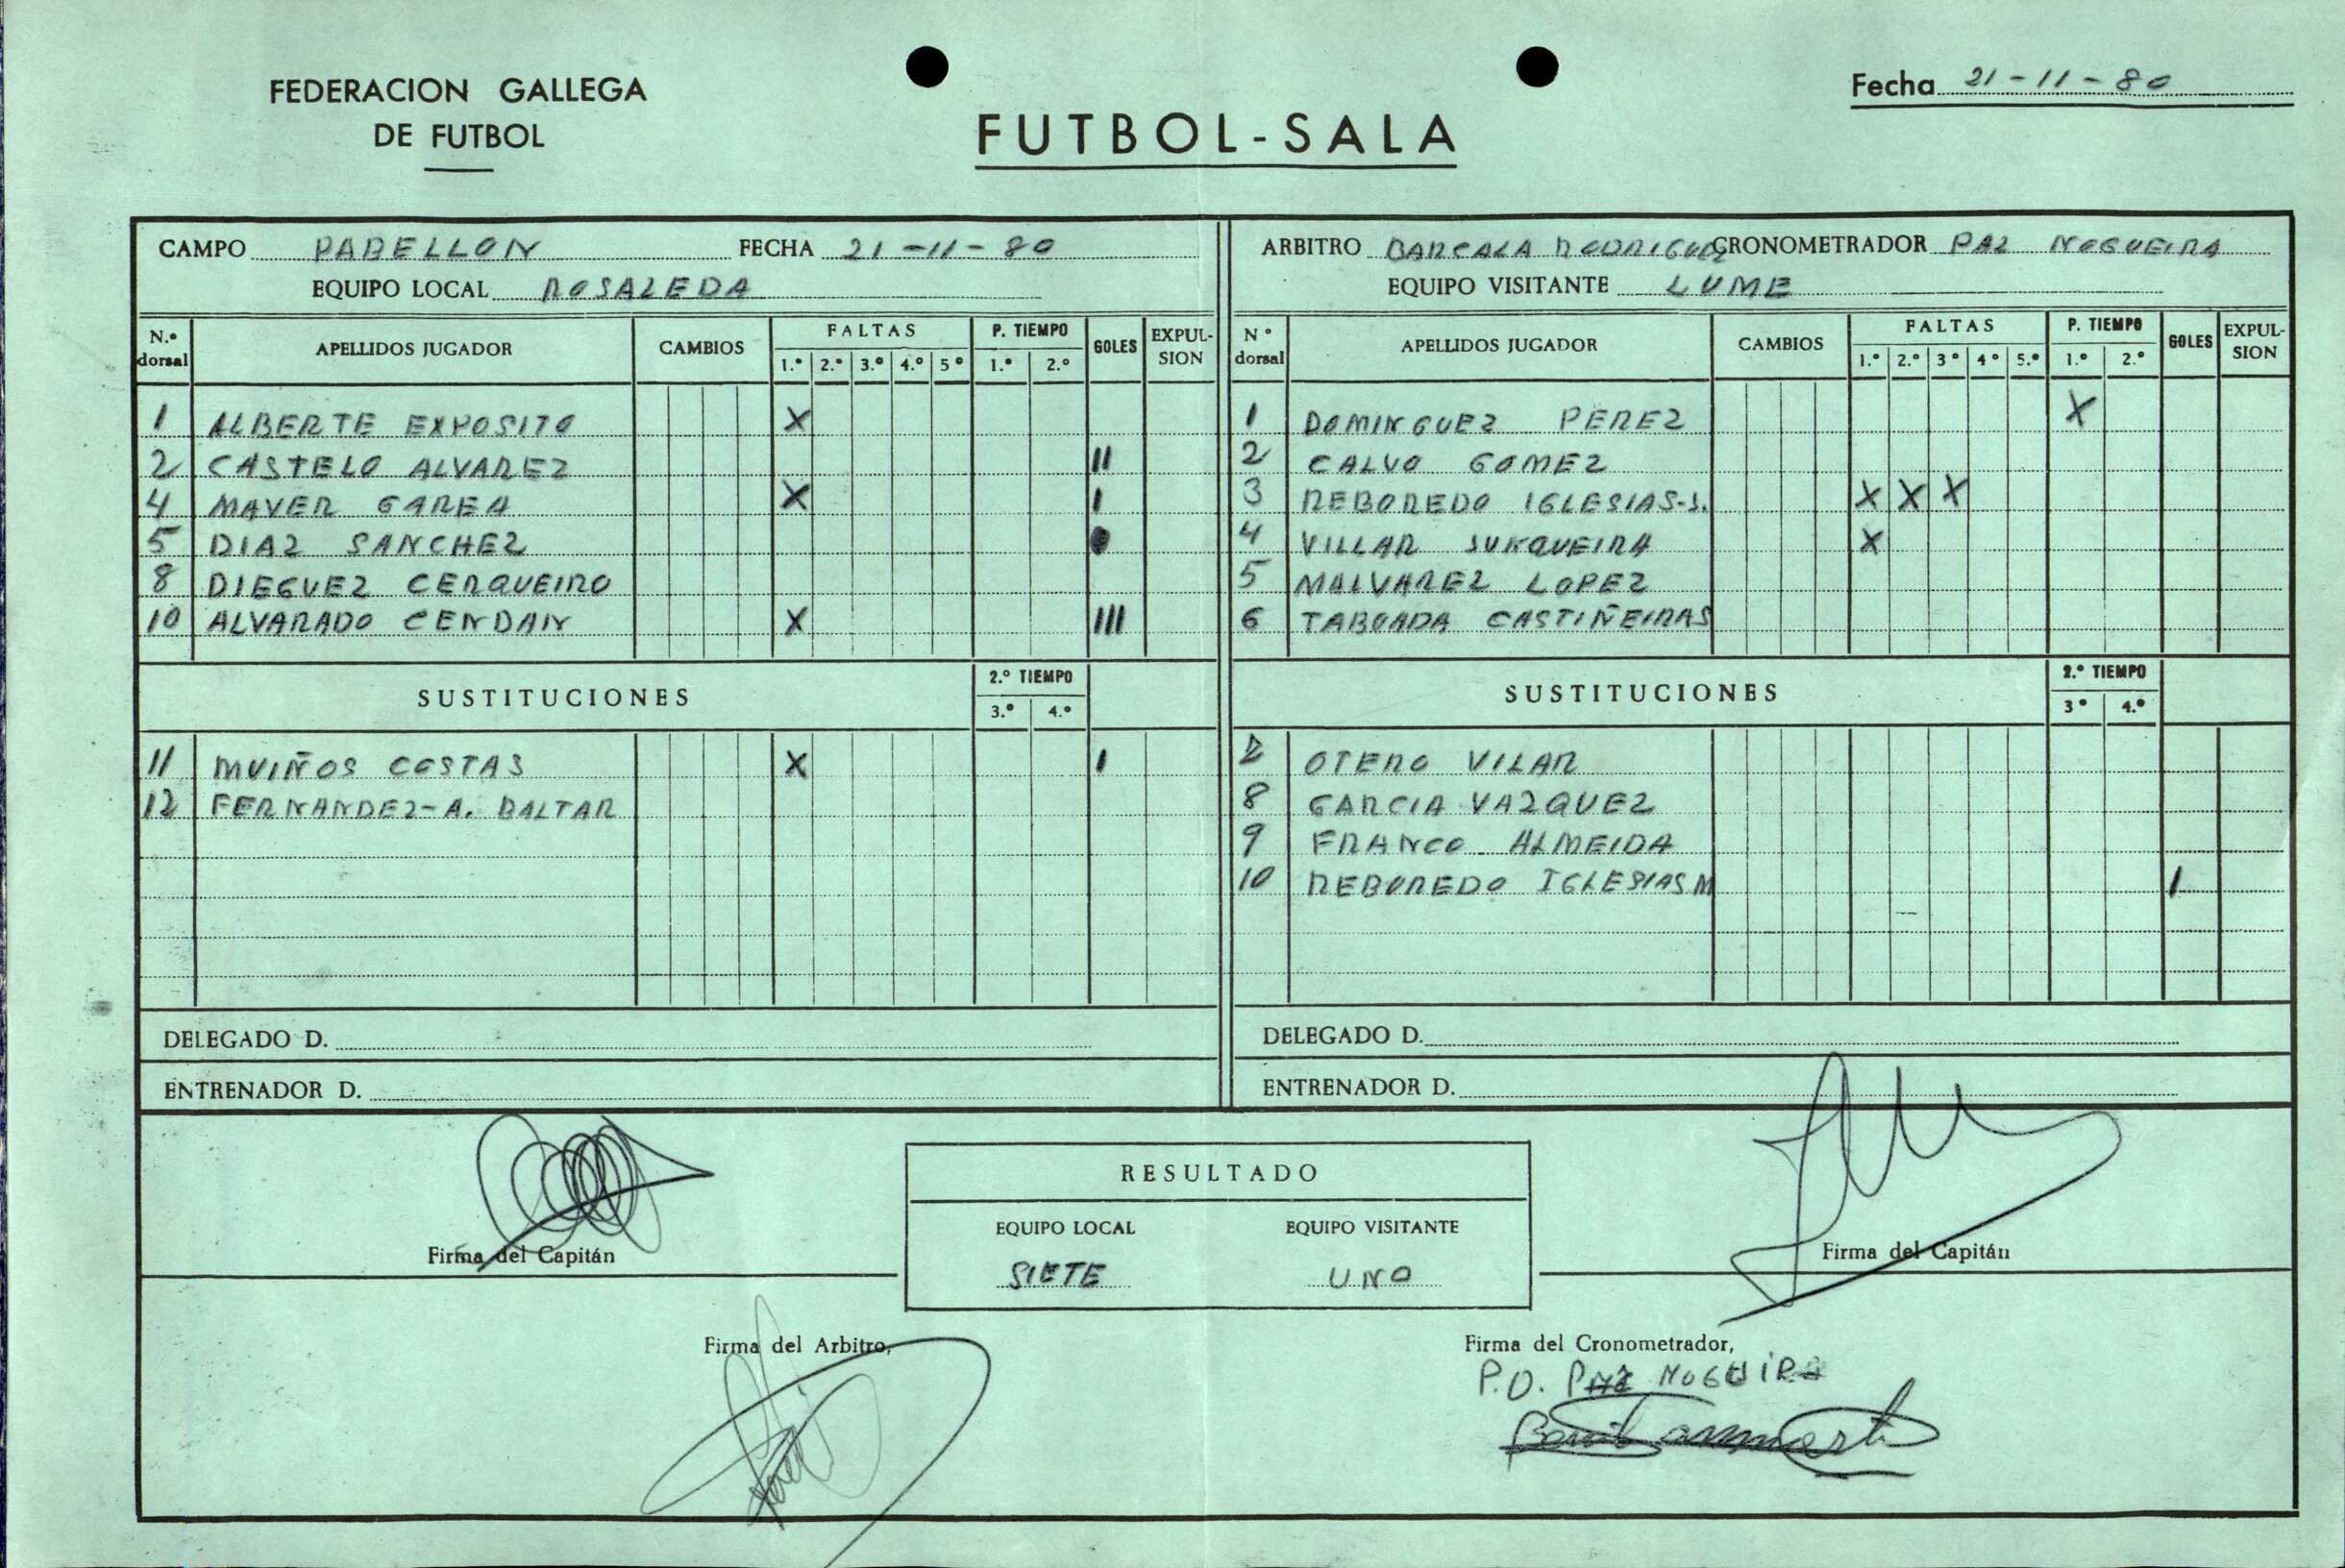 FEDERACION GALLEGA
DE FUTBOL
FUTBOL-SALA
Fecha 21-11-80
CAMPO PABELLON FECHA 21-11-80
EQUIPO LOCAL ROSALEDA
ARBITRO BARCALA RODRIGUEZ CRONOMETRADOR PAZ NOGUEIRA
EQUIPO VISITANTE LUME
N.º dorsal APELLIDOS JUGADOR CAMBIOS FALTAS 1.º 2.º 3.º 4.º 5º P. TIEMPO 1.º 2.º GOLES EXPULSION
1 ALBERTE EXPOSITO X
2 CASTELO ALVAREZ II
4 MAVER GAREA X I
5 DIAZ SANCHEZ
8 DIEGUEZ CERQUEIRO
10 ALVARADO CENDAN X III
SUSTITUCIONES 2.º TIEMPO 3.º 4.º
11 MUIÑOS COSTAS X I
12 FERNANDEZ-A. BALTAR
DELEGADO D.
ENTRENADOR D.
N º dorsal APELLIDOS JUGADOR CAMBIOS FALTAS 1.º 2.º 3º 4º 5.º P. TIEMPO 1.º 2.º GOLES EXPULSION
1 DOMINGUEZ PEREZ X
2 CALVO GOMEZ
3 REBOREDO IGLESIAS-J. X X X
4 VILLAR JUNQUEIRA X
5 MALVAREZ LOPEZ
6 TABOADA CASTIÑEIRAS
SUSTITUCIONES 2.º TIEMPO 3º 4.º
OTERO VILAR
8 GARCIA VAZQUEZ
9 FRANCO ALMEIDA
10 REBOREDO IGLESIAS M I
DELEGADO D.
ENTRENADOR D.
RESULTADO
EQUIPO LOCAL EQUIPO VISITANTE
SIETE UNO
Firma del Capitán
Firma del Capitán
Firma del Arbitro,
Firma del Cronometrador,
P.O. PAZ NOGUIRA